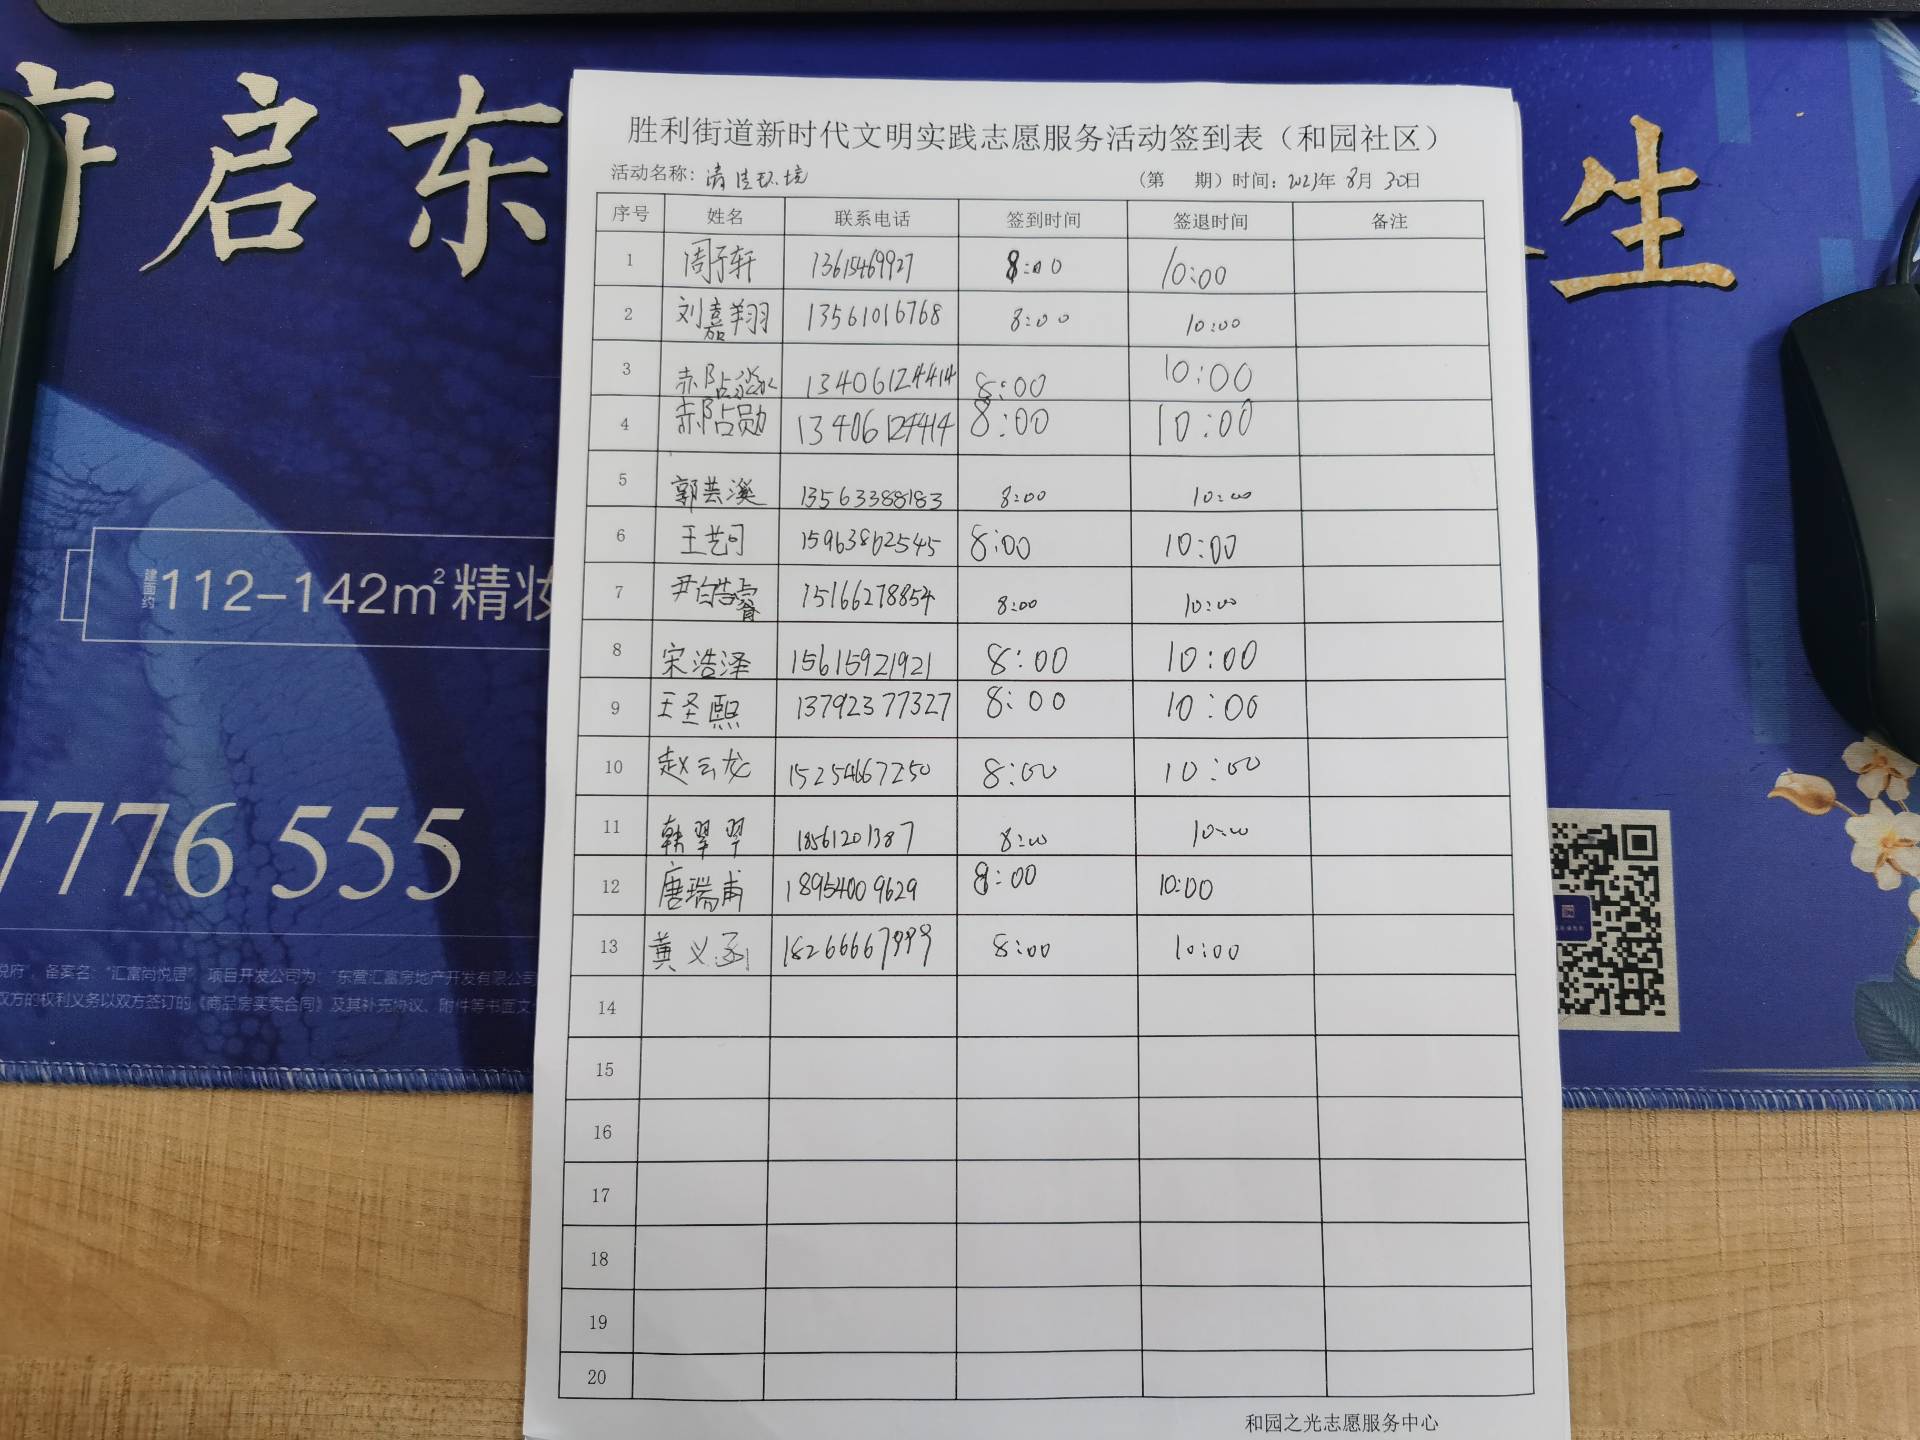 启东
生
建面约112-142m²精妆
7776 555
悦府", 备案名: "汇富尚悦居" 项目开发公司为: "东营汇富房地产开发有限公司
双方的权利义务以双方签订的《商品房买卖合同》及其补充协议、附件等书面文
胜利街道新时代文明实践志愿服务活动签到表（和园社区）
活动名称: 清洁环境 （第 期）时间: 2023年 8月 30日
序号 姓名 联系电话 签到时间 签退时间 备注
1 周子轩 13615469927 8:00 10:00
2 刘嘉翔 13561016768 8:00 10:00
3 13406124414 8:00 10:00
4 13406124414 8:00 10:00
5 郭芸溪 13563388183 8:00 10:00
6 王艺可 15963862545 8:00 10:00
7 尹皓霄 15166278854 8:00 10:00
8 宋浩泽 15615921921 8:00 10:00
9 王圣熙 13792377327 8:00 10:00
10 赵云龙 15254667250 8:00 10:00
11 韩翠翠 18561201387 8:00 10:00
12 唐瑞甫 18954009629 8:00 10:00
13 黄义函 18266667999 8:00 10:00
14
15
16
17
18
19
20
和园之光志愿服务中心